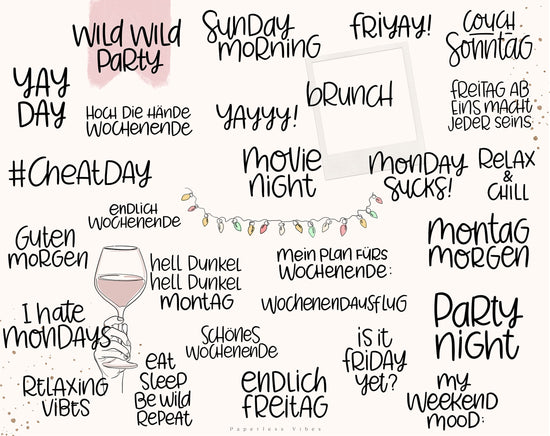 Wild Wild
Party
Sunday
morning
Friyay!
Couch
Sonntag
Yay
Day
Hoch die Hände
Wochenende
Yayyy!
brunch
Freitag ab
eins macht
jeder seins
#Cheatday
movie
night
monday
sucks!
Relax
&
Chill
endlich
Wochenende
Guten
morgen
hell Dunkel
hell Dunkel
montag
mein Plan fürs
Wochenende:
montag
morgen
I hate
mondays
Wochenendausflug
Party
night
Schönes
Wochenende
is it
friday
yet?
Relaxing
Vibes
eat
Sleep
Be wild
Repeat
endlich
Freitag
my
weekend
mood:
Paperless Vibes